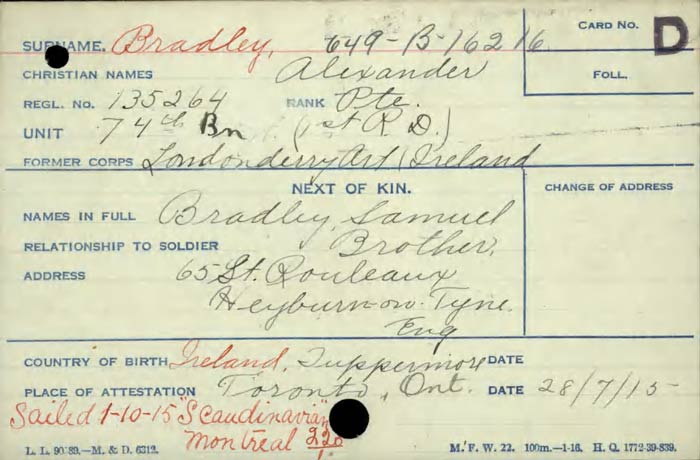 SURNAME. Bradley, 649-B-16216
CARD NO.
D
CHRISTIAN NAMES Alexander
FOLL.
REGL. NO. 135264 RANK Pte.
UNIT 74th Bn (1st R.D.)
FORMER CORPS Londonderry Art, Ireland
NEXT OF KIN.
CHANGE OF ADDRESS
NAMES IN FULL Bradley, Samuel
RELATIONSHIP TO SOLDIER Brother,
ADDRESS 65 St. Rouleaux
Heyburn-on-Tyne.
Eng
COUNTRY OF BIRTH Ireland, Tuppermore DATE
PLACE OF ATTESTATION Toronto, Ont. DATE 28/7/15-
Sailed 1-10-15 "Scandinavian"
Montreal
L. L. 90389.—M. & D. 6312.
M. F. W. 22. 100m.—1-16. H. Q. 1772-39-839.